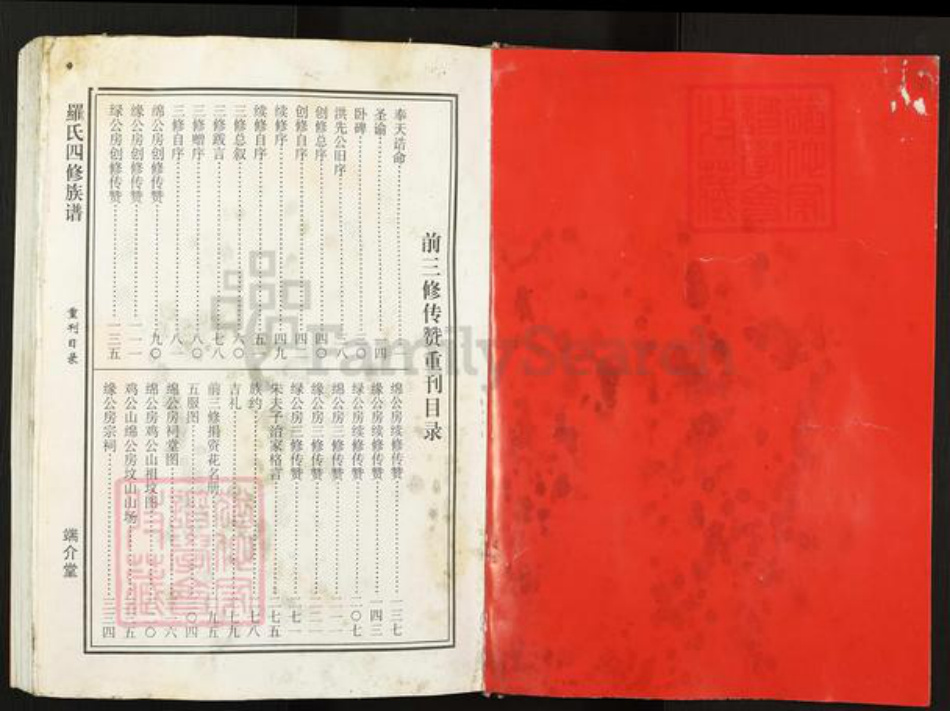 前三修传赞重刊目录
奉天诰命
圣谕 四
卧碑
洪先公旧序 八
创修总序 四〇
创修自序 四
续修序 四九
续修自序 五
三修总叙 六〇
三修跋言 七八
三修赠序 八〇
三修自序 八一
绵公房创修传赞 九〇
缘公房创修传赞 一一一
绿公房创修传赞 一三五
绵公房续修传赞 一三七
缘公房续修传赞 一四三
绿公房续修传赞 二〇七
绵公房三修传赞
缘公房三修传赞
绿公房三修传赞
朱夫子治家格言 二七五
族约 二七八
吉礼 二七九
前三修捐资花名册
五服图
绵公房祠堂图
绵公房鸡公山祖坟图
鸡公山绵公房坟山山场
缘公房宗祠 三三四
羅氏四修族谱
重刊目录
端介堂
FamilySearch